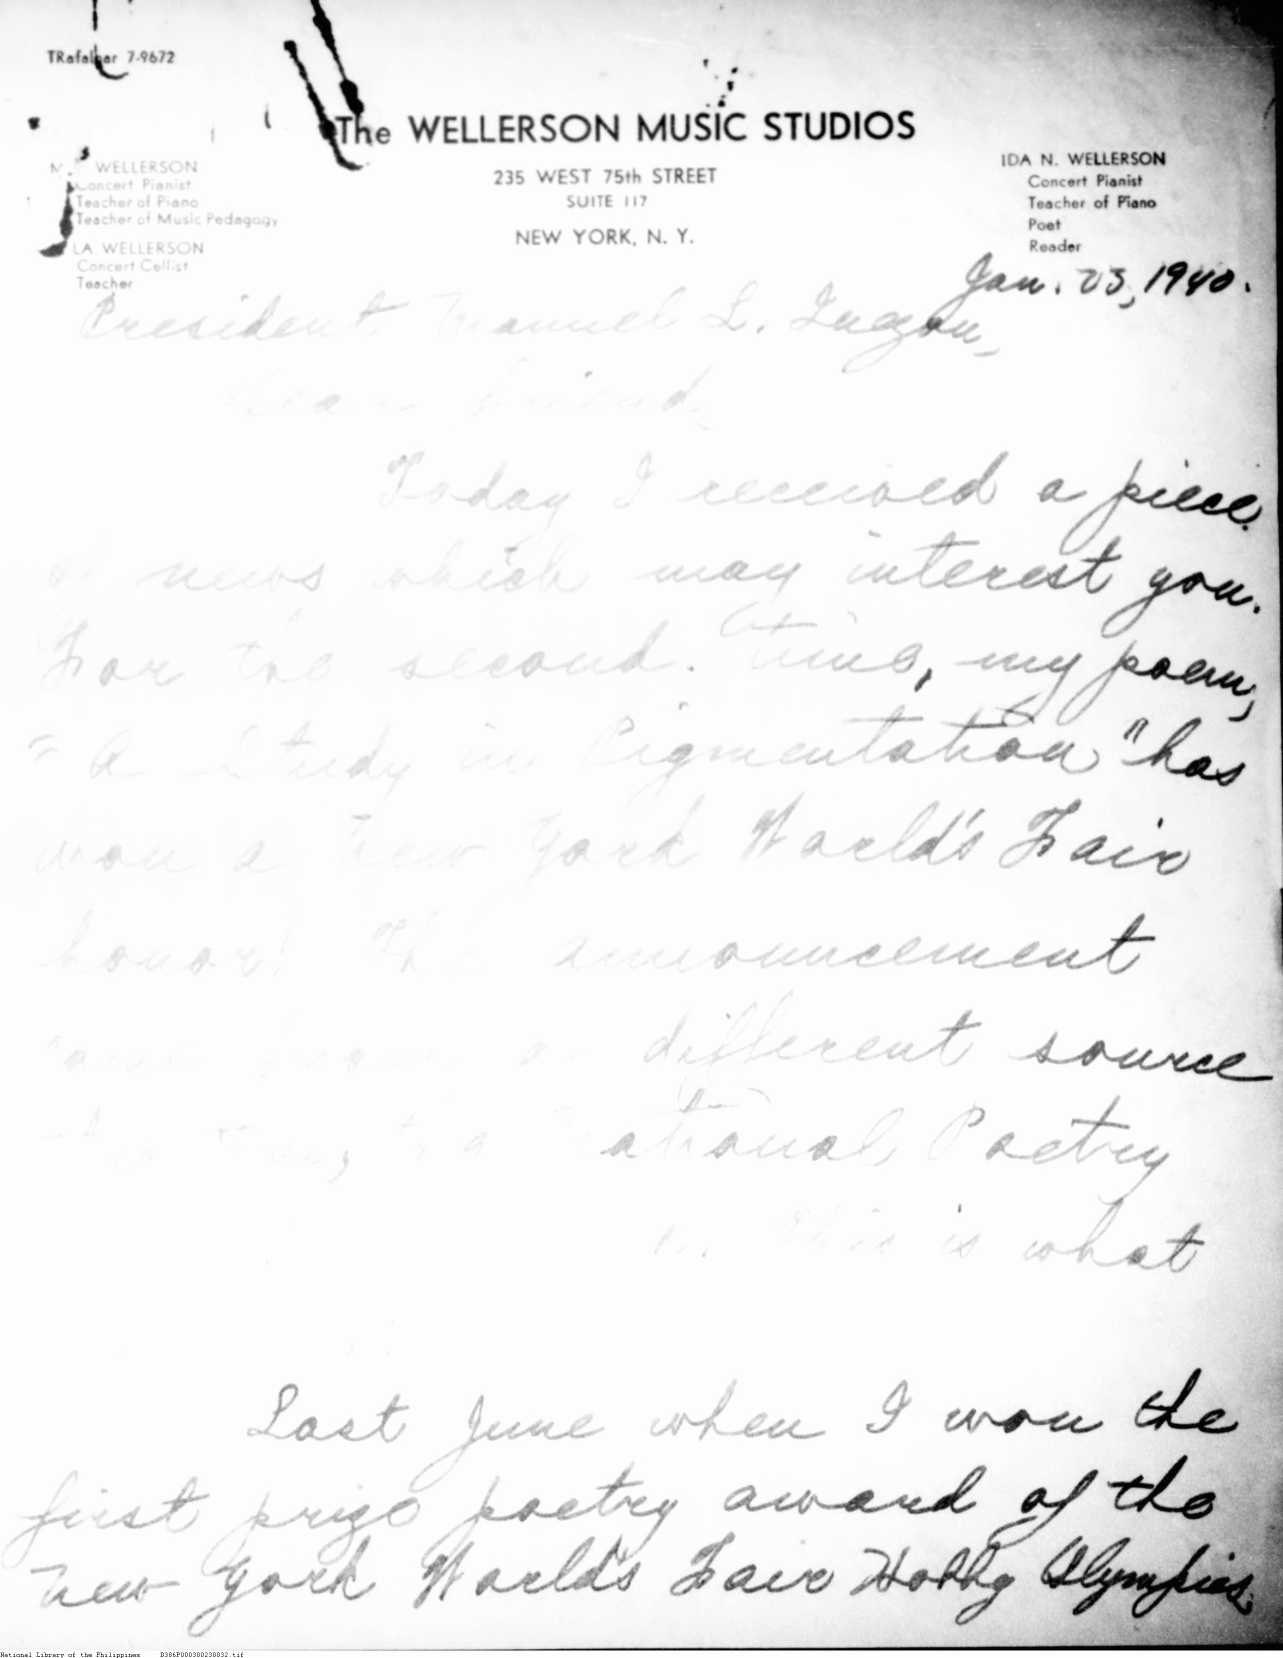 TRafalgar 7-9672
The WELLERSON MUSIC STUDIOS
235 WEST 75th STREET
SUITE 117
NEW YORK, N. Y.
WELLERSON
Concert Pianist
Teacher of Piano
Teacher of Music Pedagogy
LA WELLERSON
Concert Cellist
Teacher
IDA N. WELLERSON
Concert Pianist
Teacher of Piano
Poet
Reader
Jan. 23, 1940.
President Manuel L. Quezon,
Dear Friend,
Today I received a piece
of news which may interest you.
For the second time, my poem,
"A Study in Pigmentation" has
won a New York World's Fair
honor! The announcement
came from a different source
this time, the National Poetry
This is what
Last June when I won the
first prize poetry award of the
New York World's Fair Hobby Olympics,
National Library of the Philippines B386P000380238832.tif